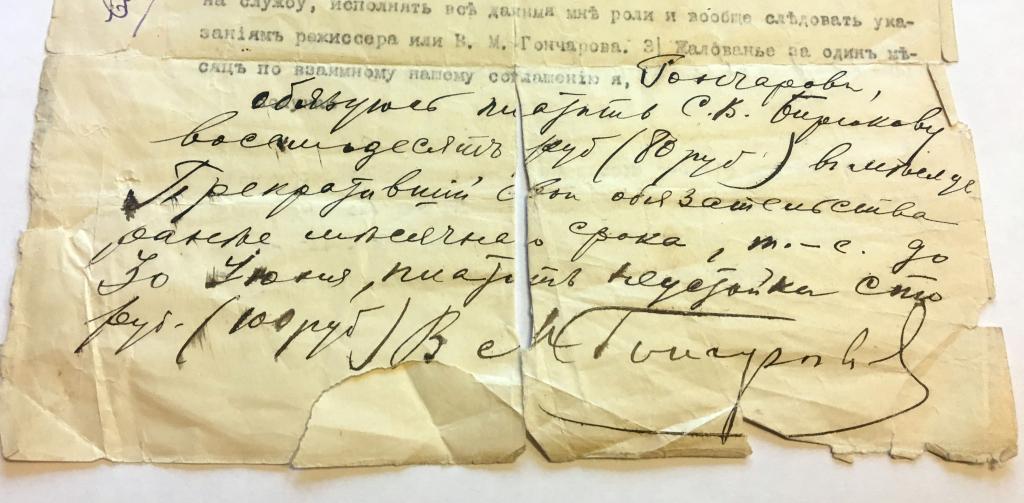 на службу, исполнять всѣ данныя мнѣ роли и вообще слѣдовать ука-
заніямъ режиссера или В. М. Гончарова. 3/ Жалованье за одинъ мѣ-
сяцъ по взаимному нашему соглашенію я, Гончаровъ,
обязуюсь платить С. В. Бирюкову
восемьдесятъ руб (80 руб) въ мѣсяцъ
Прекратившій свои обязательства
ранѣе мѣсячнаго срока, т.-е. до
30 Июня, платитъ неустойки сто
руб. (100 руб) В М Гончаровъ